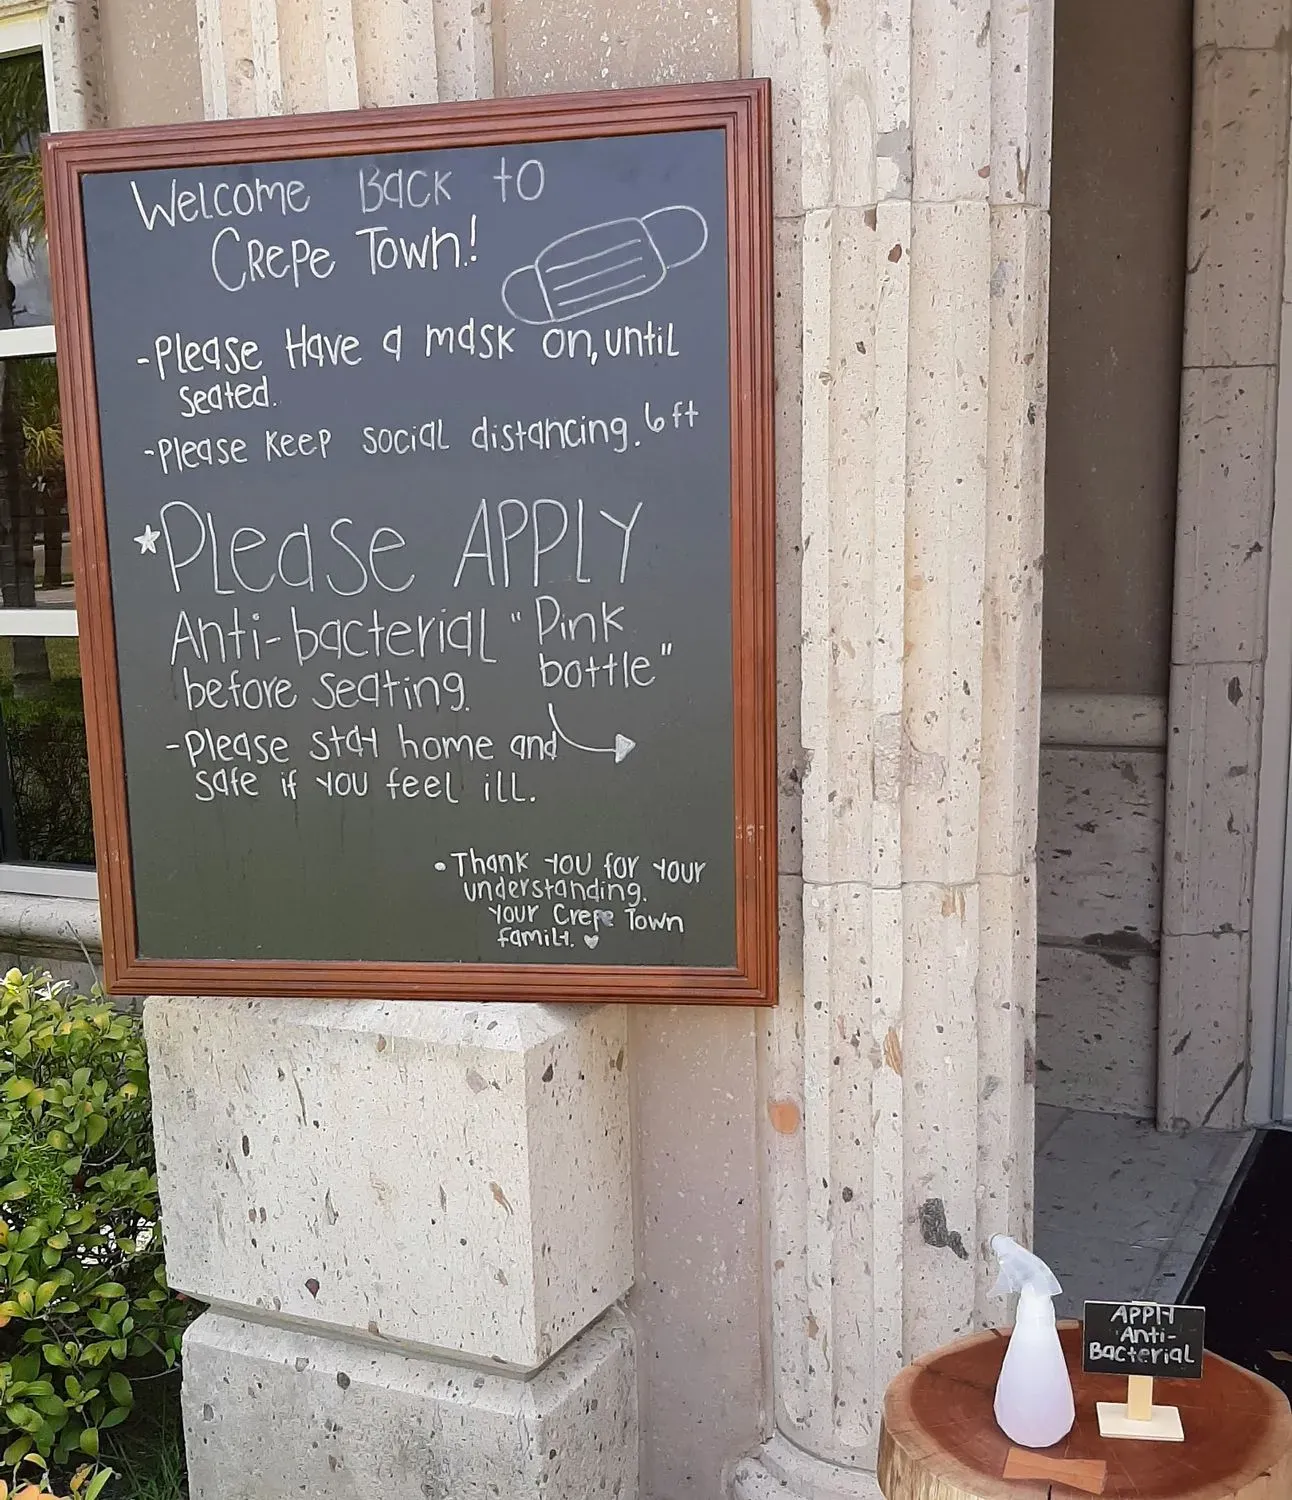 Welcome Back to
Crepe Town!
-Please Have a mask on, until
seated.
-Please Keep social distancing. 6ft
★Please APPLY
Anti-bacterial "Pink
bottle"
before seating.
-Please stay home and
safe if you feel ill.
•Thank you for your
understanding.
Your Crepe Town
family. ♥
APPLY
Anti-
Bacterial